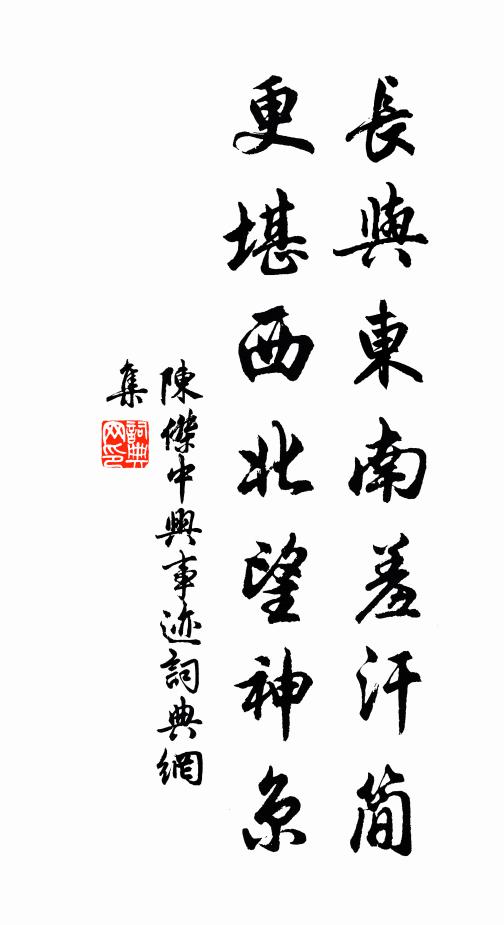 長與東南羞汗簡
更堪西北望神京
陳傑中興事迹詞典網
集
詞典
网印